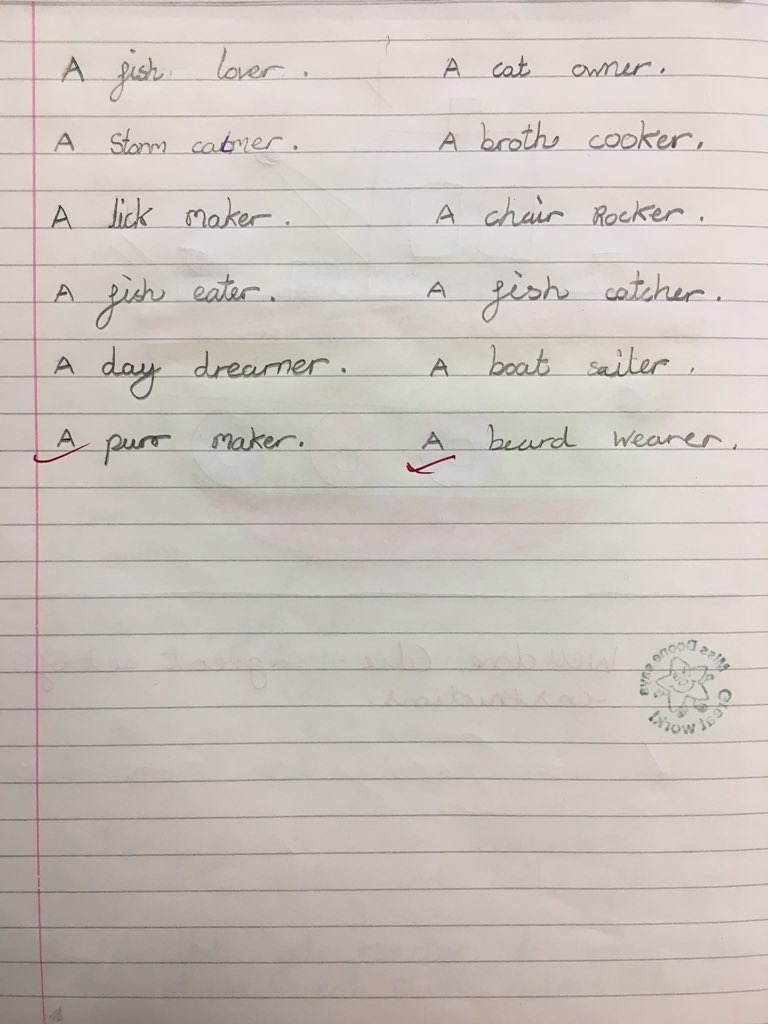 A fish lover. A cat owner.
A Storm catmer. A broth cooker.
A lick maker. A chair Rocker.
A fish eater. A fish catcher.
A day dreamer. A boat sailer.
A purr maker. A beard wearer.
Well done great set of
instructions
Miss Doone says
Great work!